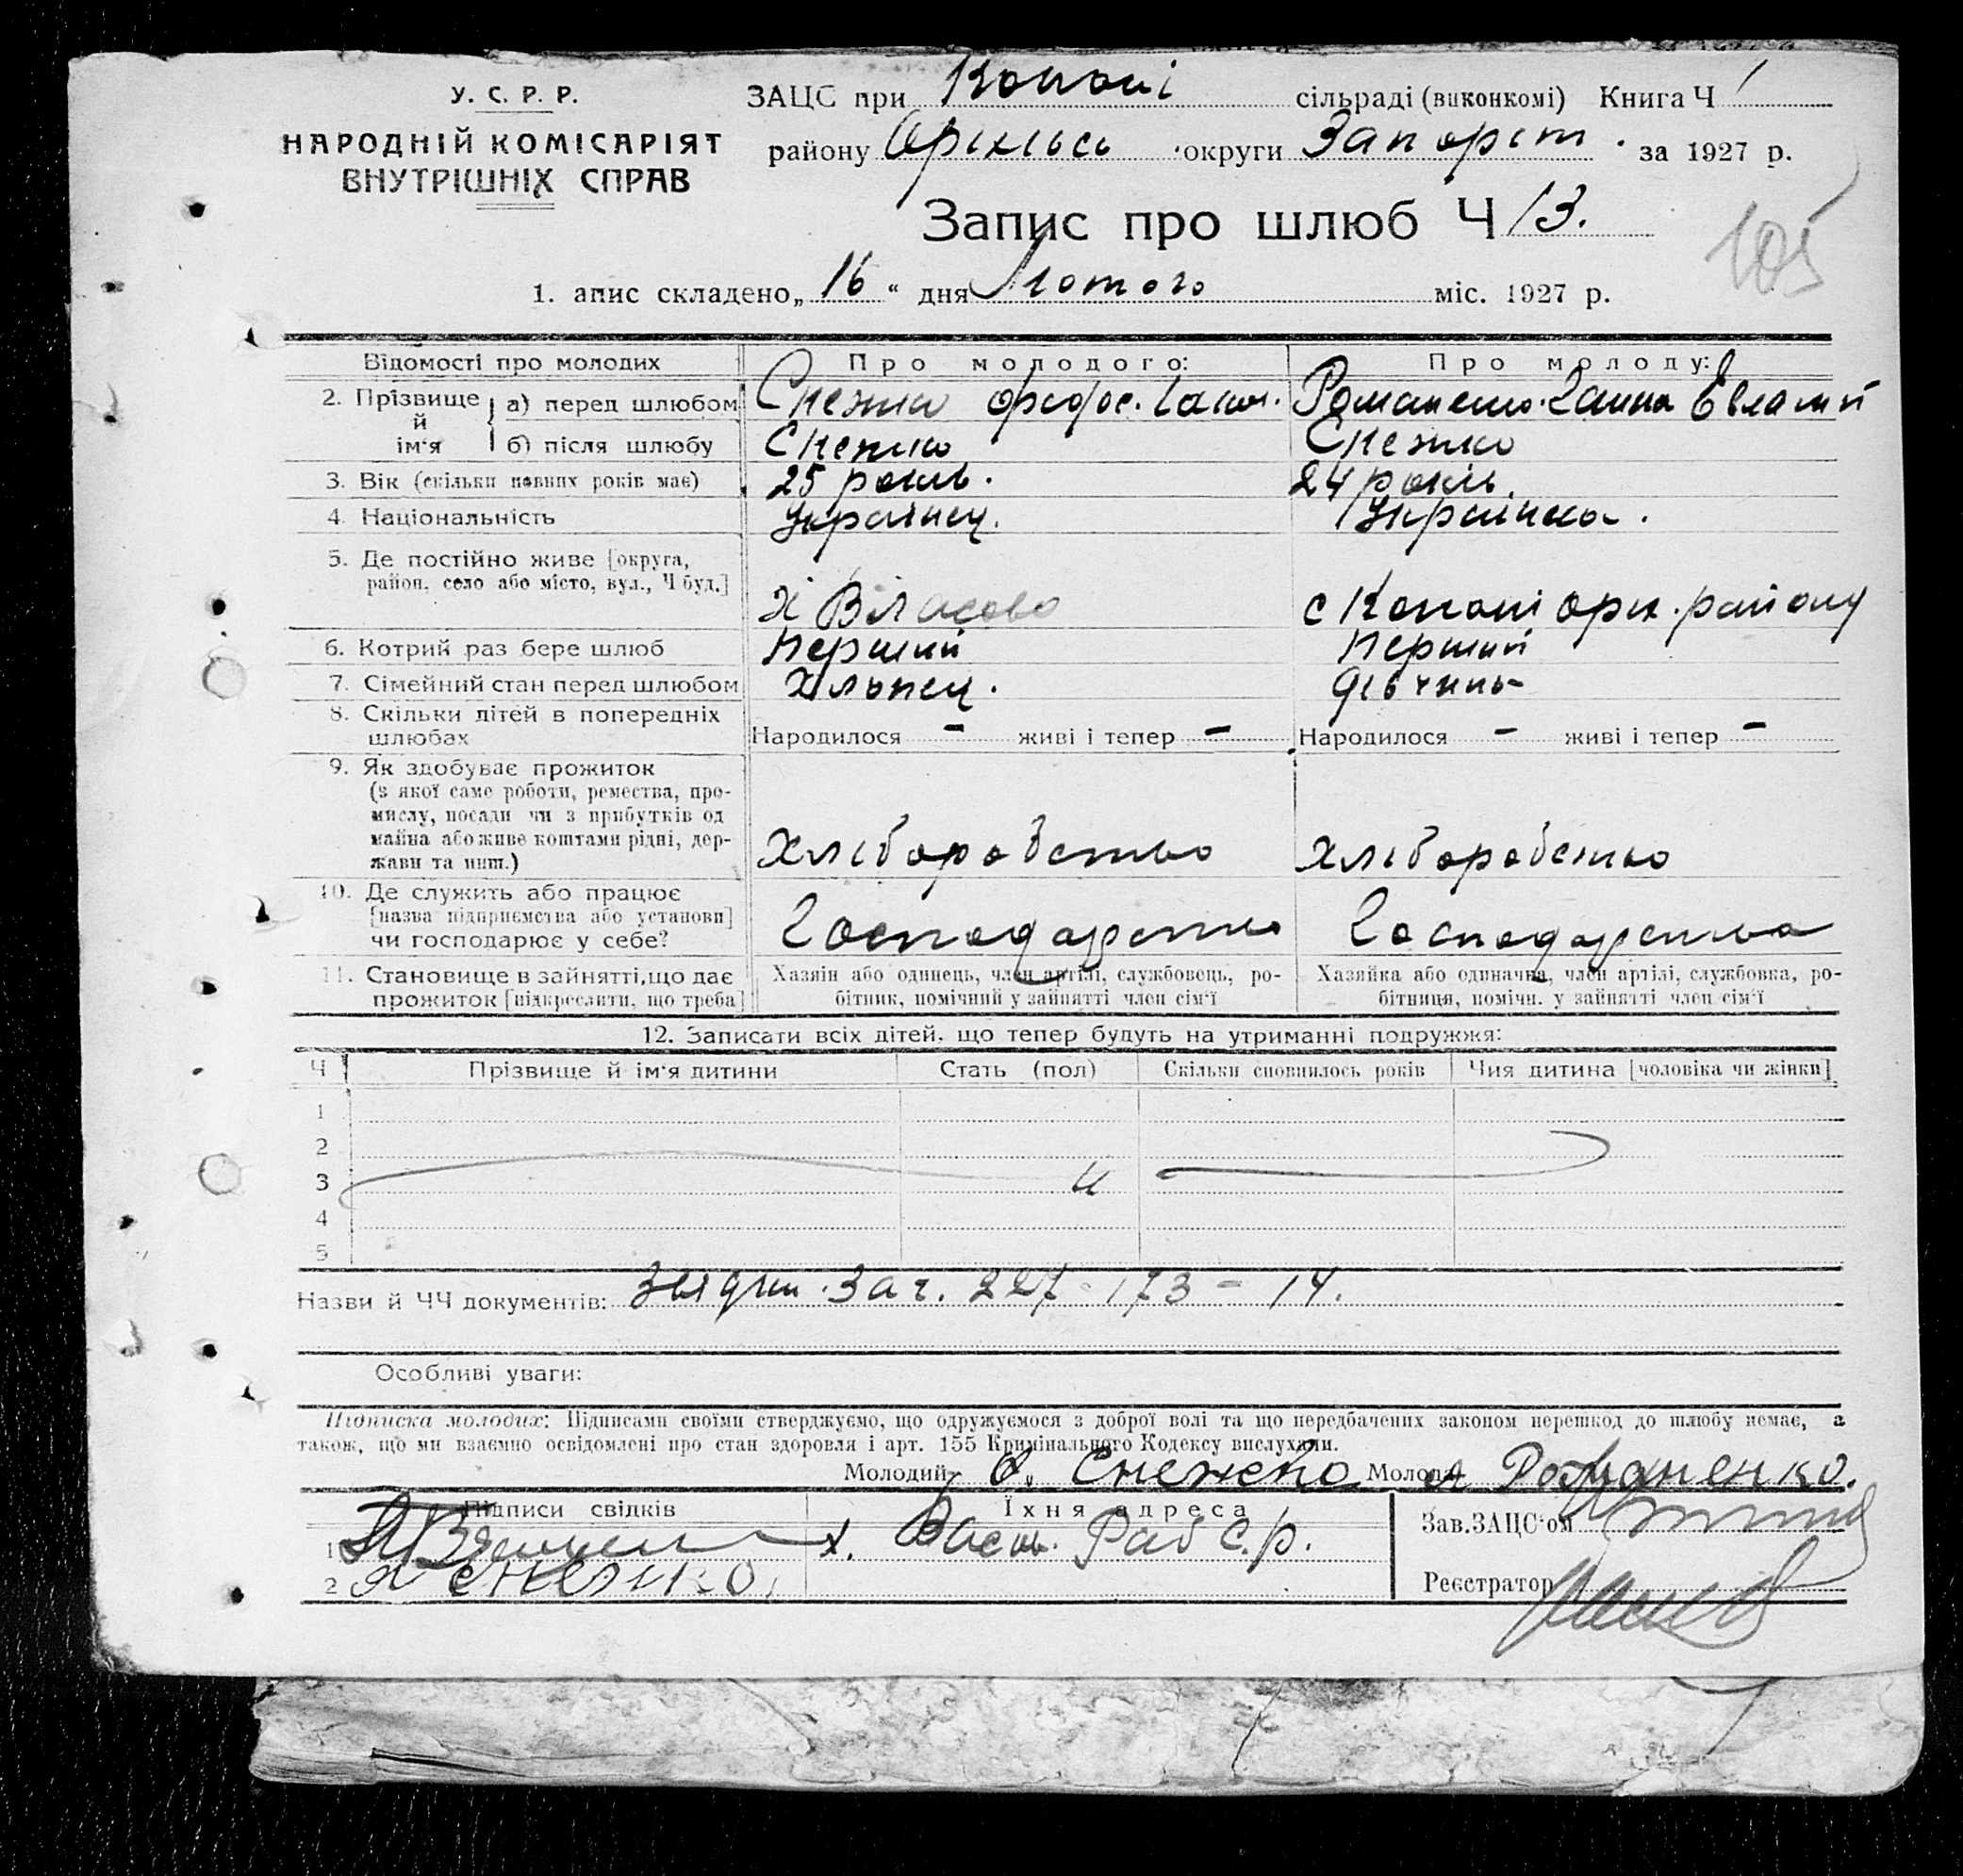 У. С. Р. Р.
НАРОДНІЙ КОМІСАРІЯТ
ВНУТРІШНІХ СПРАВ
ЗАЦС при Копані сільраді (виконкомі) Книга Ч 1
району Оріхівсь округи Запоріт. за 1927 р.
Запис про шлюб Ч 13.
105
1. апис складено „16“ дня Лютого міс. 1927 р.
Відомості про молодих Про молодого: Про молоду:
2. Прізвище й ім'я а) перед шлюбом Снежко Романенко Ганна Евламп
б) після шлюбу Снежко Снежко
3. Вік (скільки повних років має) 25 років. 24 років.
4. Національність Українец. Українка.
5. Де постійно живе [округа,
район, село або місто, вул., Ч буд.] х Власово с Копані орх. району
6. Котрий раз бере шлюб Перший Перший
7. Сімейний стан перед шлюбом Хлопец. Дівчина
8. Скільки дітей в попередніх
шлюбах Народилося - живі і тепер - Народилося - живі і тепер -
9. Як здобуває прожиток
(з якої саме роботи, ремества, про-
мислу, посади чи з прибутків од
майна або живе коштами рідні, дер-
жави та инш.) Хліборобство Хліборобство
10. Де служить або працює
[назва підприємства або установи]
чи господарює у себе? Господарство Господарство
11. Становище в зайнятті, що дає
прожиток [підкреслити, що треба]
Хазяїн або одинець, член артілі, службовець, ро-
бітник, помічний у зайнятті член сім'ї
Хазяйка або одиначка, член артілі, службовка, ро-
бітниця, помічн. у зайнятті член сім'ї
12. Записати всіх дітей, що тепер будуть на утриманні подружжя:
Ч Прізвище й ім'я дитини Стать (пол) Скільки сповнилось років Чия дитина [чоловіка чи жінки]
1
2
3
4
5
Назви й ЧЧ документів: За ч. 227 - 173 - 14.
Особливі уваги:
Підписка молодих: Підписами своїми стверджуємо, що одружуємося з доброї волі та що передбачених законом перешкод до шлюбу немає, а
також, що ми взаємно освідомлені про стан здоров'я і арт. 155 Кримінального Кодексу вислухали.
Молодий Снежко Молода Романенко.
Підписи свідків Їхня адреса Зав. ЗАЦС'ом
1 х.
2 Снежко Реєстратор